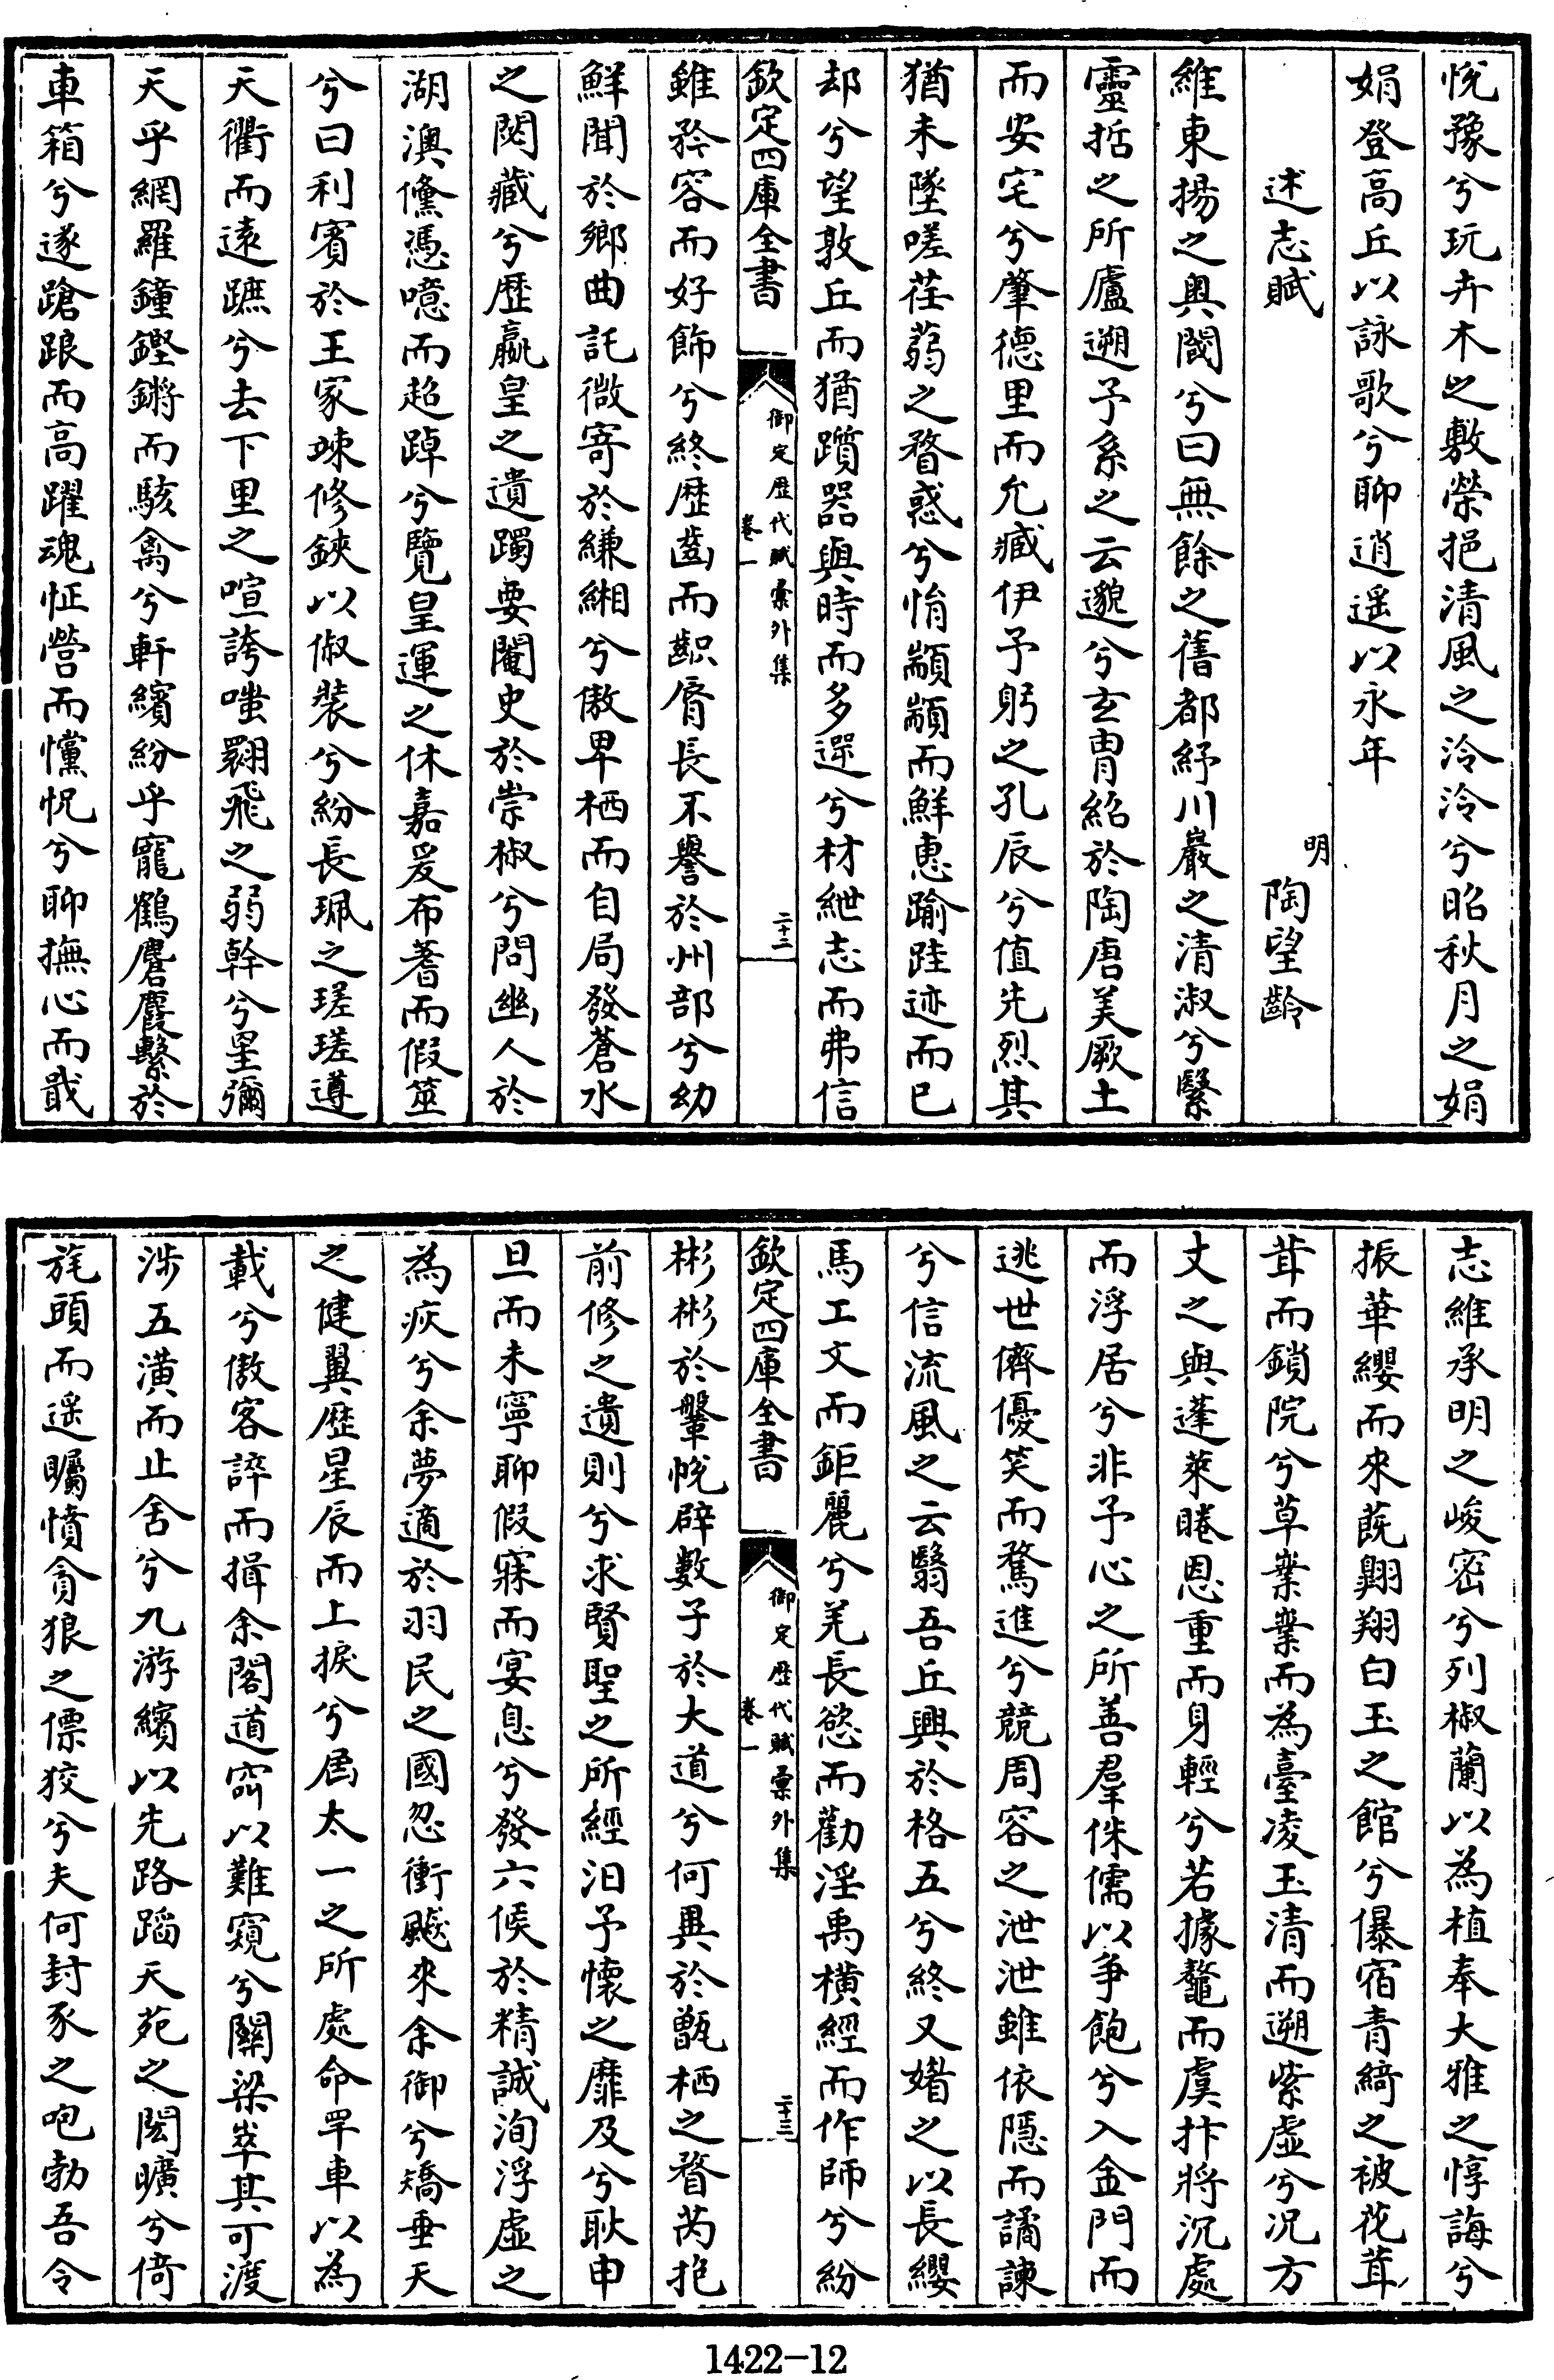 悅豫兮玩卉木之敷榮挹清風之泠泠兮昭秋月之娟
娟登高丘以詠歌兮聊逍遥以永年
述志賦
明
陶望齡
維東揚之奥閾兮曰無餘之舊都紓川巖之清淑兮繄
靈括之所廬遡予系之云邈兮玄胄紹於陶唐美厥土
而安宅兮肇德里而允臧伊予躬之孔辰兮值先烈其
猶未墜嗟荏蒻之瞀惑兮惰顓顓而鮮恵踰跬迹而已
却兮望敦丘而猶躓器與時而多遻兮材紲志而弗信
欽定四庫全書
御定歴代賦彙外集
卷一
二十二
雖矜容而好飾兮終歴齒而齞脣長不譽於州部兮幼
鮮聞於鄉曲託微寄於縑緗兮傲卑栖而自局發蒼水
之閟藏兮歴嬴皇之遺躅要閹史於崇椒兮問幽人於
湖澳儻憑噫而超踔兮覽皇運之休嘉爰布蓍而假筮
兮曰利賓於王家竦修鋏以俶裝兮紛長珮之瑳瑳遵
天衢而遠蹠兮去下里之喧誇嗤翾飛之弱幹兮星彌
天乎網羅鐘鏗鏘而駭禽兮軒繽紛乎寵鶴麏麚繫於
車箱兮遂蹌踉而高躍魂怔營而戃怳兮聊撫心而戢
志維承明之峻密兮列椒蘭以為植奉大雅之惇誨兮
振華纓而來蕺翺翔白玉之館兮儤宿青綺之被花茸
茸而鎖院兮草業業而為臺凌玉清而遡紫虚兮况方
丈之與蓬萊睠恩重而身輕兮若據鼇而虞抃將沉處
而浮居兮非予心之所善羣侏儒以争飽兮入金門而
逃世儕優笑而騖進兮競周容之泄泄雖依隱而譎諫
兮信流風之云翳吾丘興於格五兮終又婼之以長纓
馬工文而鉅麗兮羌長慾而勸淫禹橫經而作師兮紛
欽定四庫全書
御定歴代賦彙外集
卷一
二十三
彬彬於鞶帨辟數子於大道兮何異於甑栖之瞀芮抱
前修之遺則兮求賢聖之所經汨予懷之靡及兮耿申
旦而未寧聊假寐而宴息兮發六候於精誠洵浮虚之
為疢兮余夢適於羽民之國忽衝飈來余御兮矯垂天
之健翼歴星辰而上捩兮屆太一之所處命罕車以為
載兮傲客誶而揖余閣道窔以難窺兮關梁崒其可渡
涉五潢而止舍兮九游繽以先路蹈天苑之閎曠兮倚
旄頭而遥矚憤貪狼之僄狡兮夫何封豕之咆勃吾令
1422-12